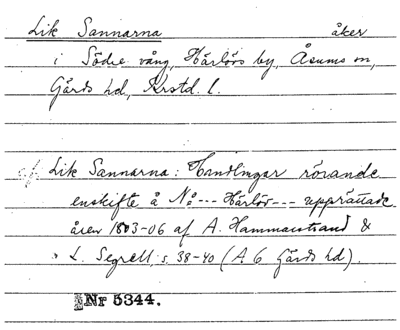 Lik Sannarna åker
i Södre vång, Härlövs by, Åsums sn,
Gärds hd, Krstd. l.
cf. Lik Sannarna: Handlingar rörande
enskifte å No --- Härlöv --- upprättade
åren 1803-06 af A. Hammarstrand &
L. Segrell, s. 38-40 (A 6 Gärds hd).
Nr 5344.